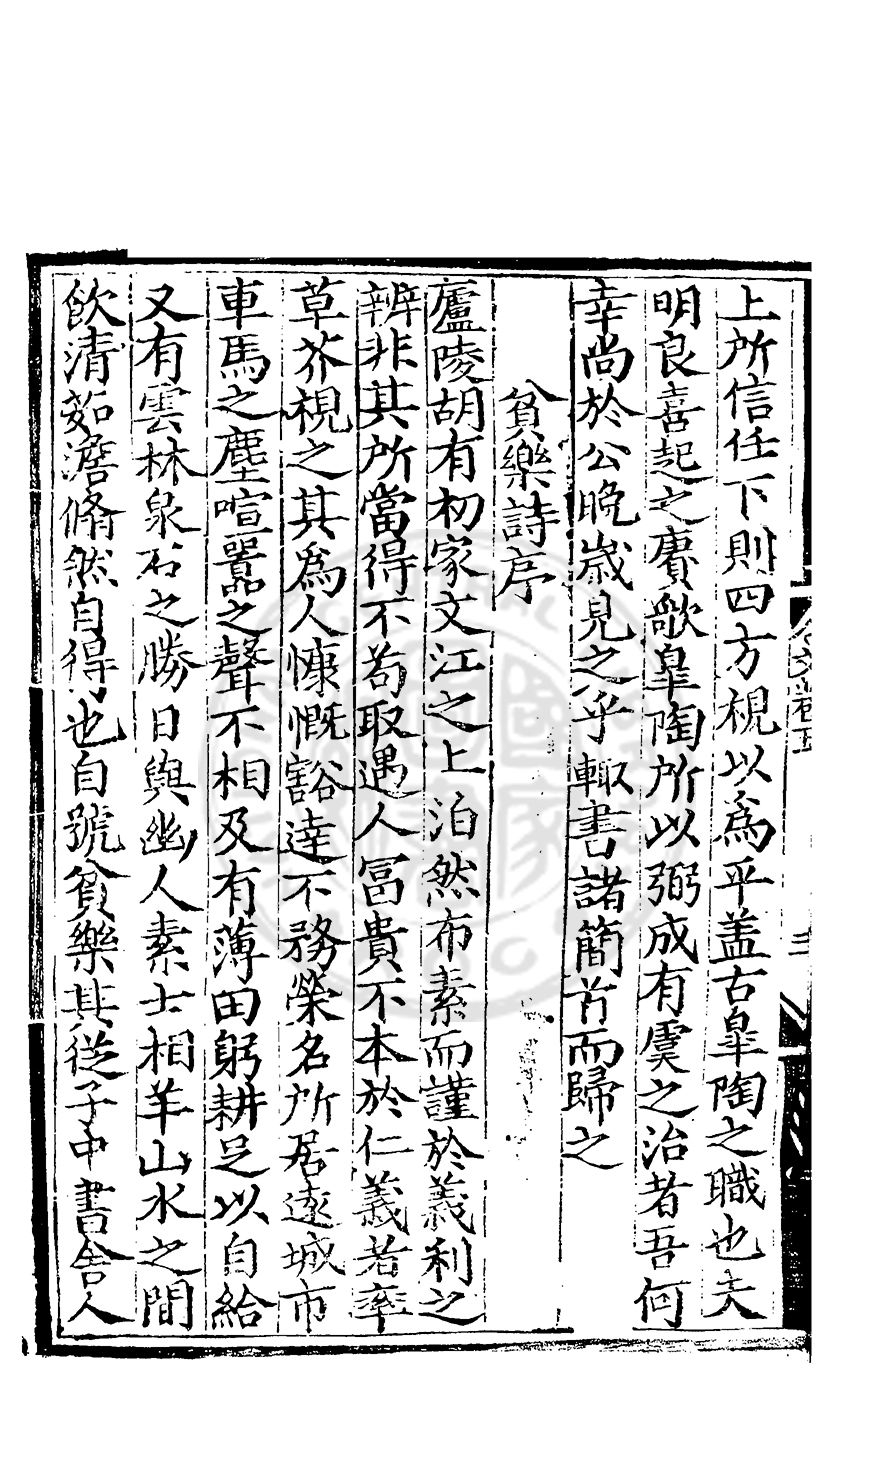 上所信任下則四方視以為平盖古臯陶之職也夫
明良喜起之賡歌臯陶所以弼成有虞之治者吾何
幸尚於公晚歲見之乎輙書諸簡首而歸之
貧樂詩序
廬陵胡有初家文江之上泊然布素而謹於義利之
辨非其所當得不苟取遇人冨貴不本於仁義者率
草芥視之其為人慷慨豁達不務榮名所居遠城市
車馬之塵喧囂之聲不相及有薄田躬耕足以自給
又有雲林泉石之勝日與幽人素士相羊山水之間
飲清茹澹翛然自得也自號貧樂其從子中書舎人